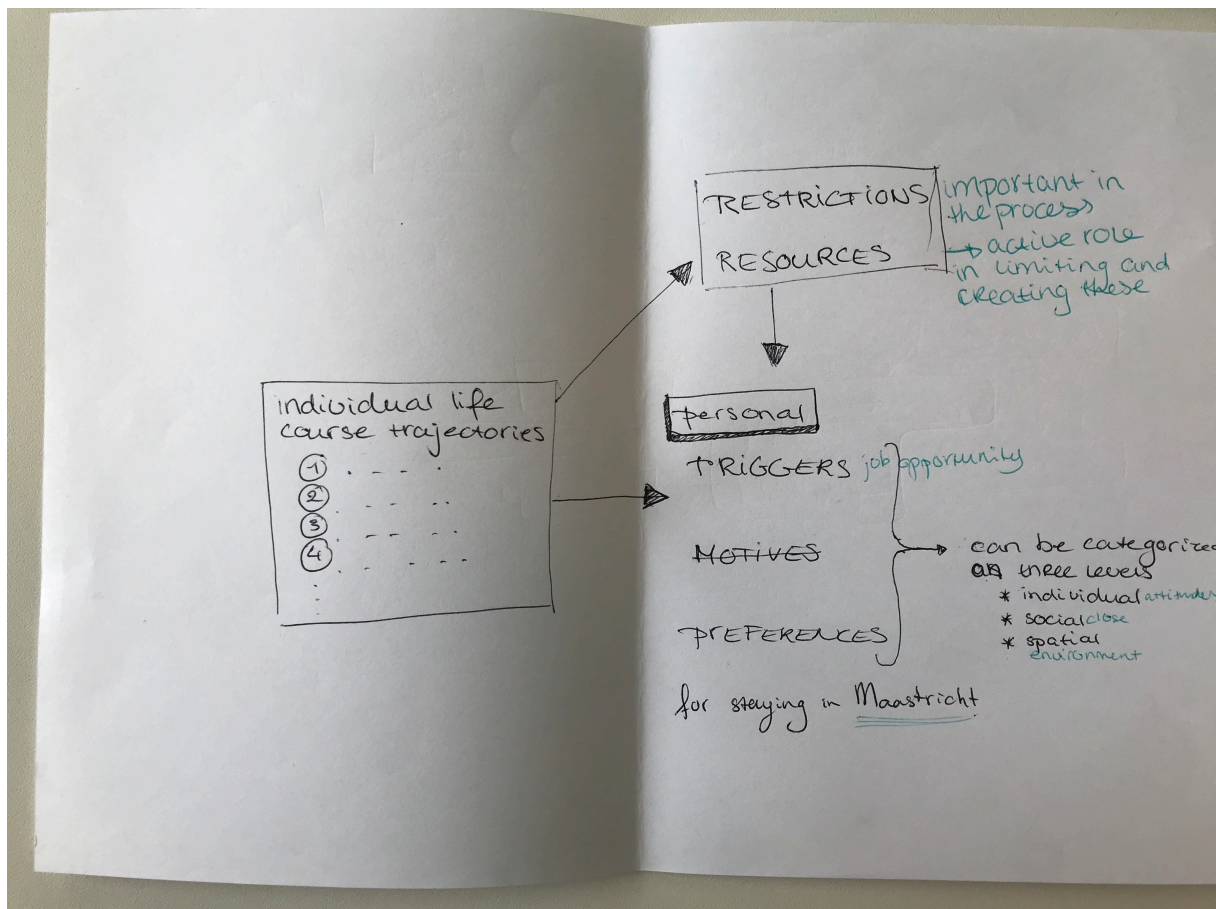 RESTRICTIONS
RESOURCES
important in
the process
→ active role
in limiting and
creating these
individual life
course trajectories
1
2
3
4
personal
TRIGGERS job opportunity
MOTIVES
PREFERENCES
can be categorized
three levels
* individual attitudes
* social close
* spatial
environment
for staying in Maastricht